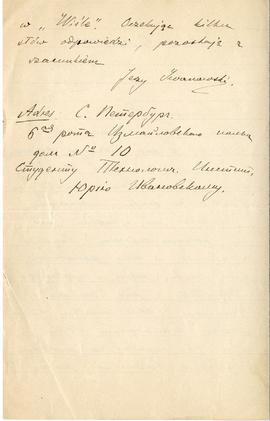 w „Wiśle". Oczekując kilku
słów odpowiedzi, pozostaję z
szacunkiem
Jerzy Iwanowski.
Adres: С. Петербург.
6ая рота Измайловского полка
дом № 10
Студенту Технолог. Инстит.
Юрію Ивановскому.